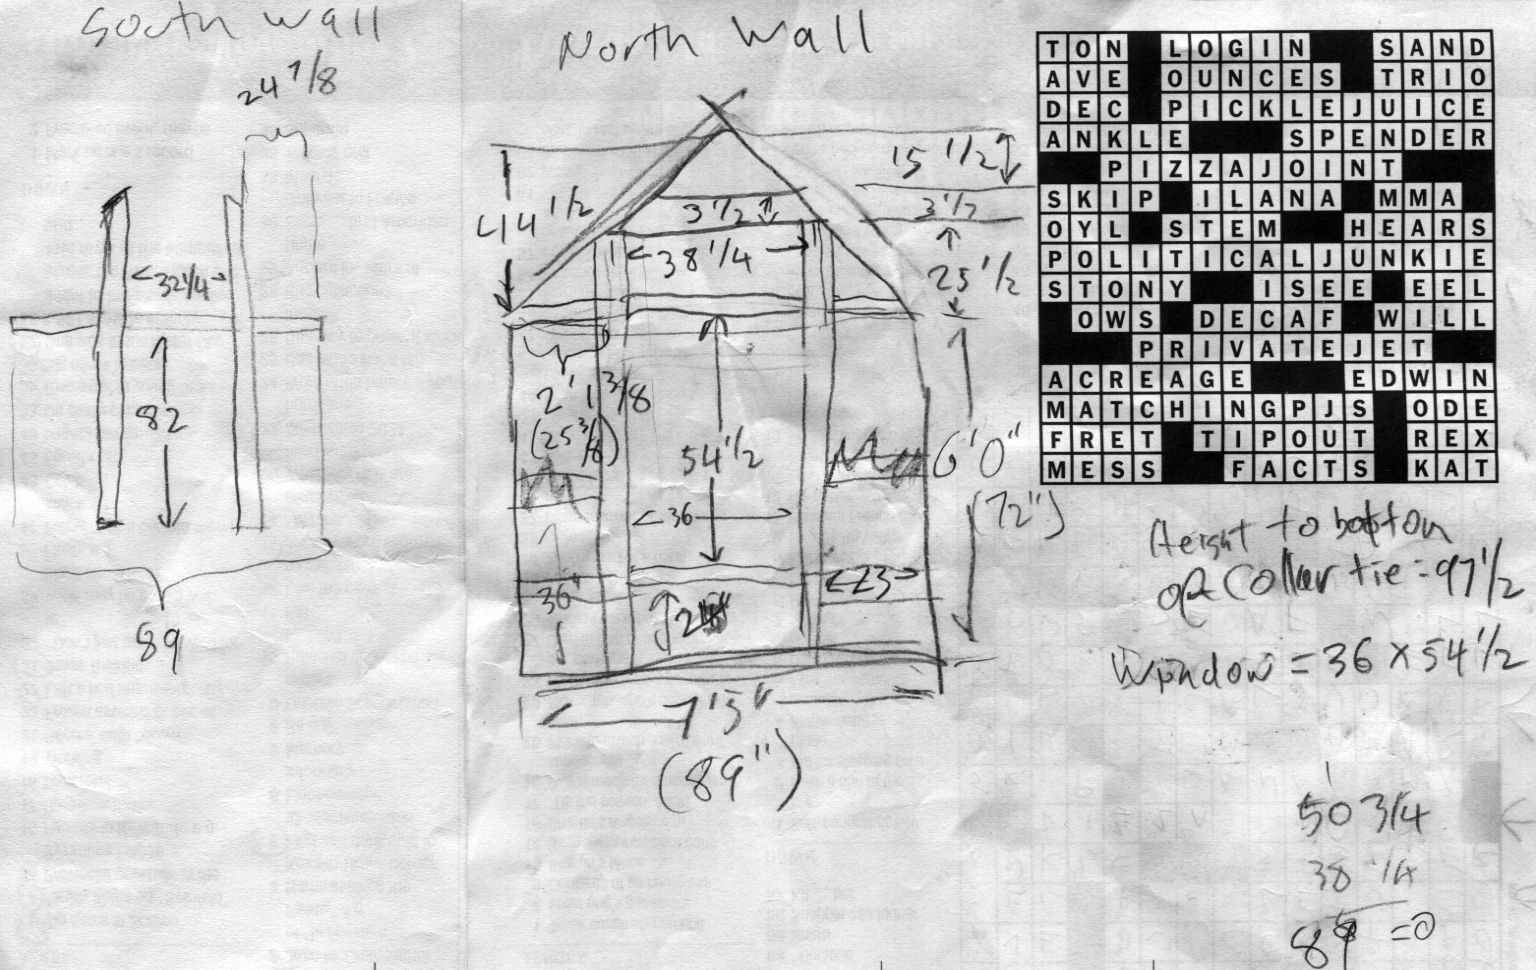 South Wall
24 7/8
32 1/4
82
89
North Wall
15 1/2
3 1/2
44 1/2
3 1/2
38 1/4
25 1/2
2' 1 3/8
(25 3/8)
54 1/2
6'0"
(72")
36
23
36"
24"
7'5"
(89")
TON LOGIN SAND
AVE OUNCES TRIO
DEC PICKLEJUICE
ANKLE SPENDER
PIZZAJOINT
SKIP ILANA MMA
OYL STEM HEARS
POLITICALJUNKIE
STONY ISEE EEL
OWS DECAF WILL
PRIVATEJET
ACREAGE EDWIN
MATCHINGPJS ODE
FRET TIPOUT REX
MESS FACTS KAT
Height to botton
of Coller tie = 97 1/2
Window = 36 x 54 1/2
1
50 3/4
38 1/4
89 = 0